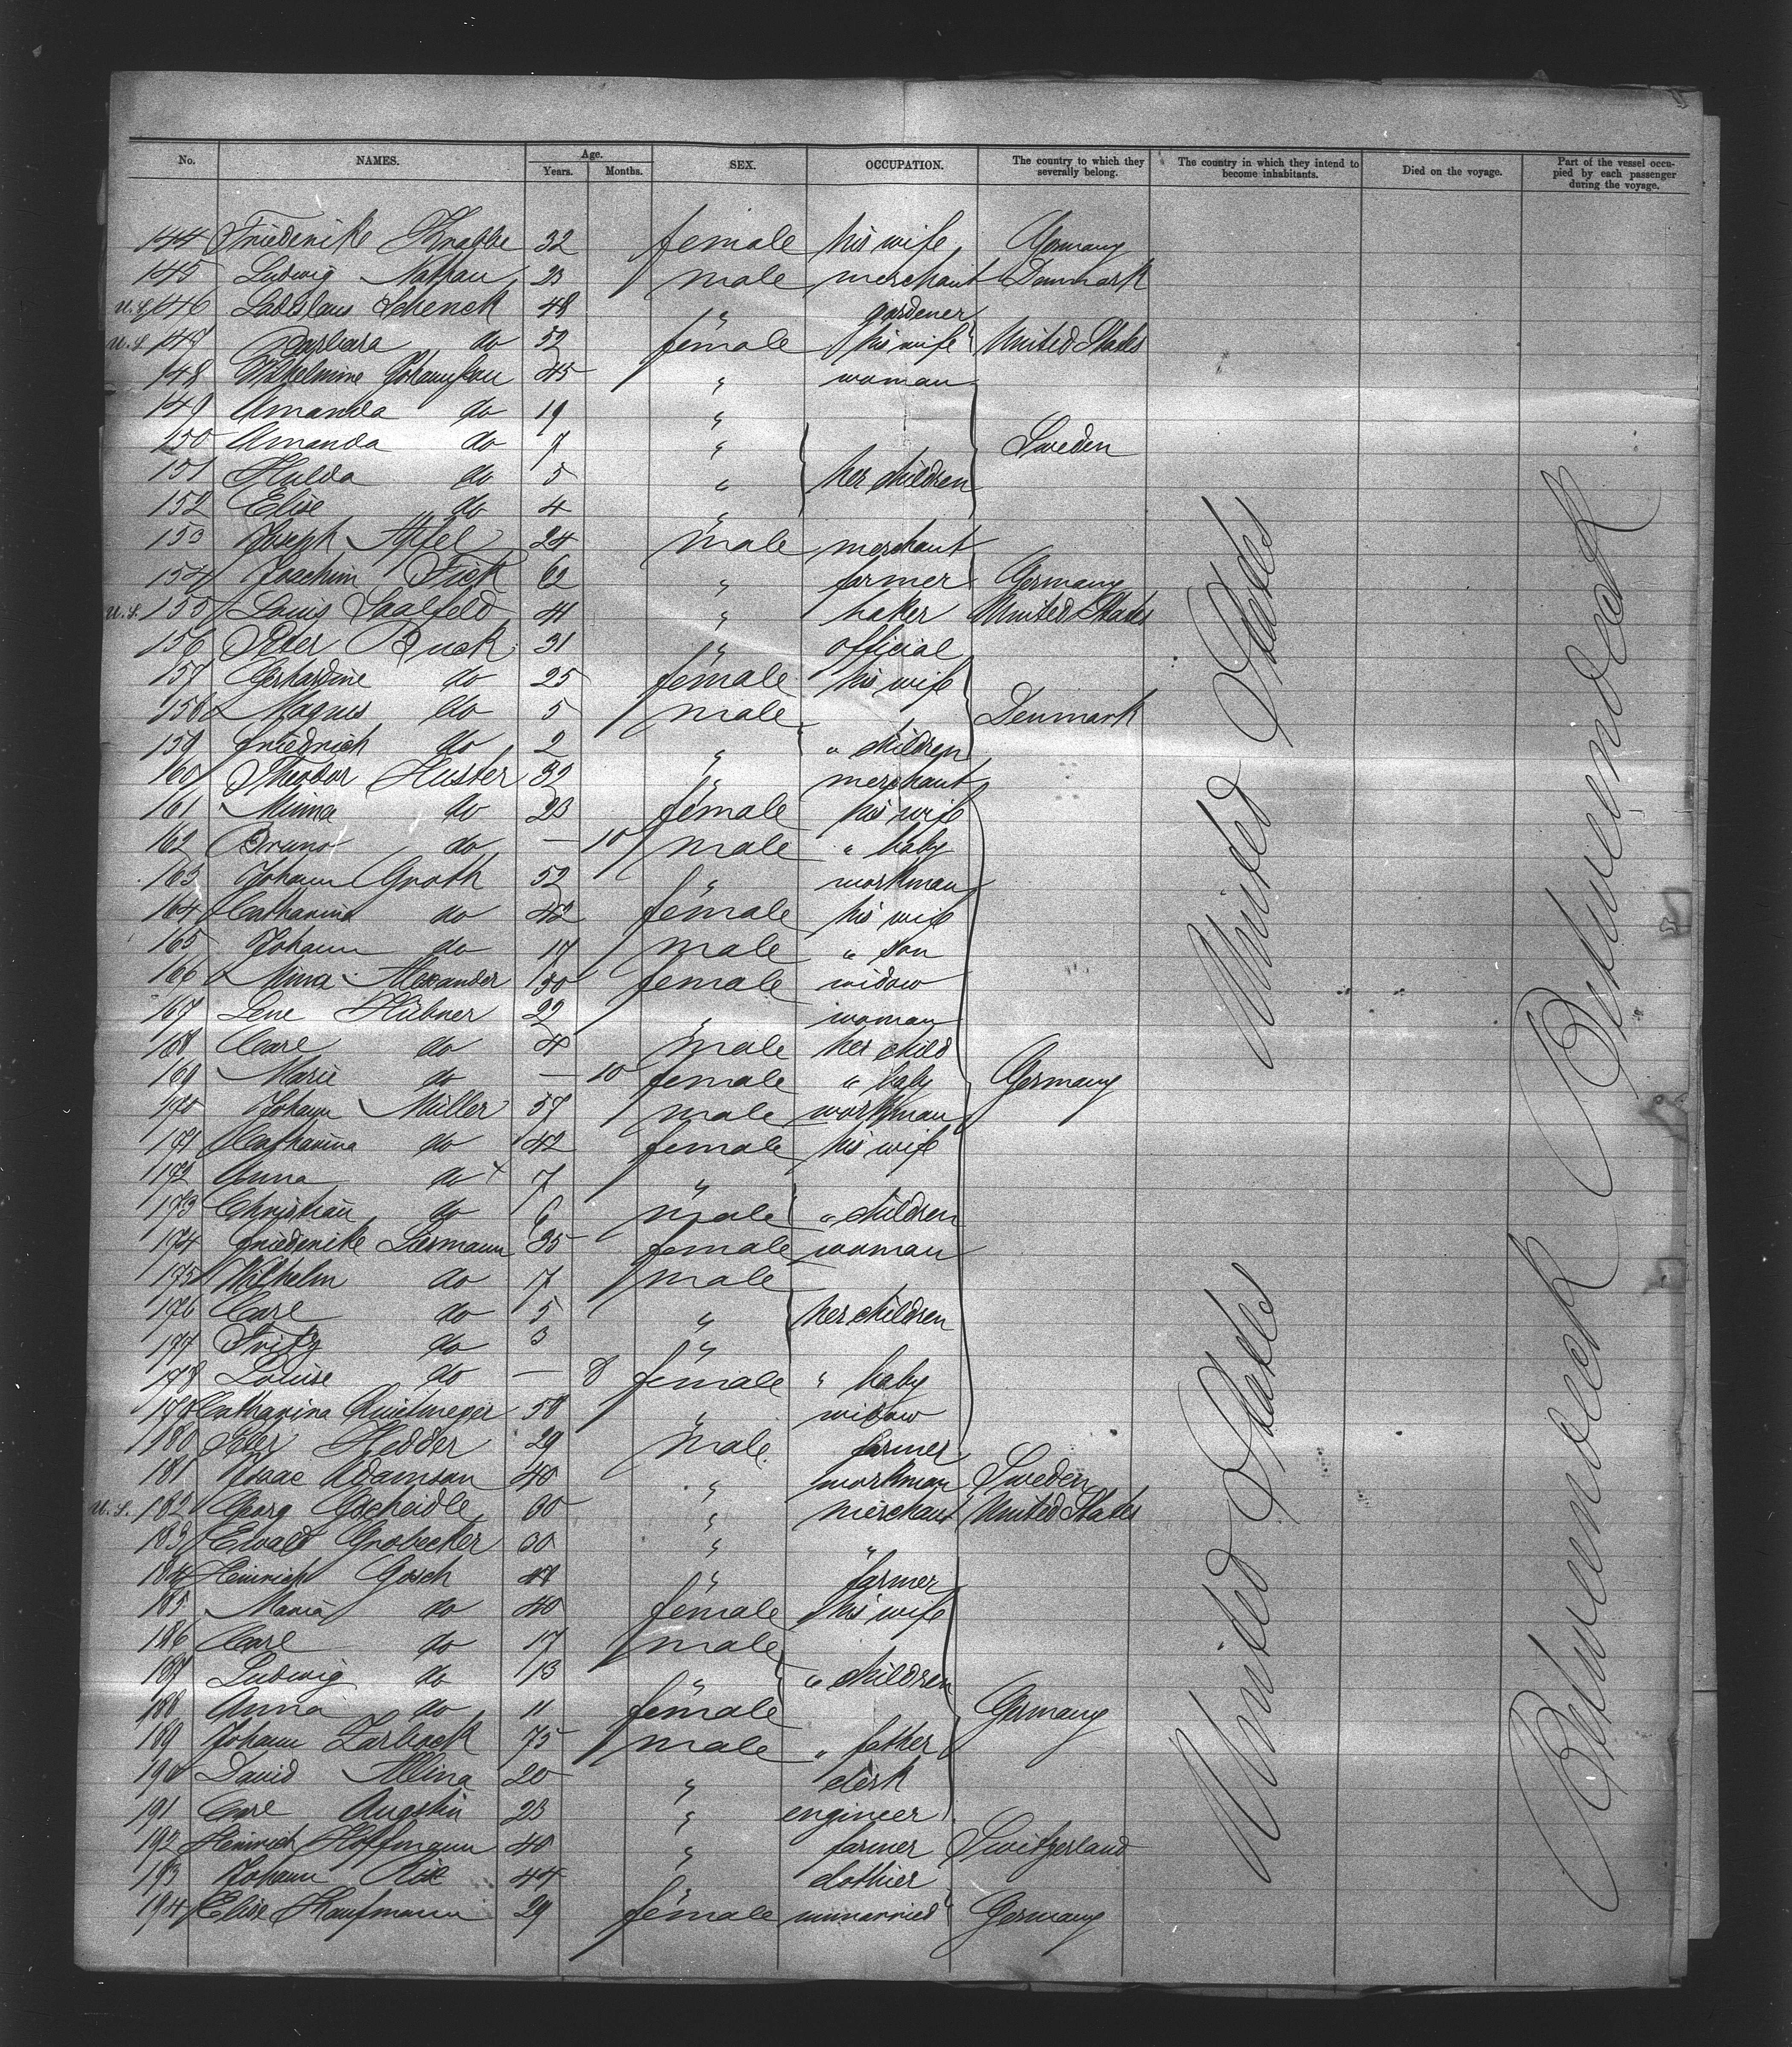 No. NAMES. Age. Years. Months. SEX. OCCUPATION. The country to which they severally belong. The country in which they intend to become inhabitants. Died on the voyage. Part of the vessel occupied by each passenger during the voyage.
144 Friederike Knabbe 32 female his wife Germany
145 Ludwig Nathan 23 male merchant Danmark
U.S. 146 Ladislaus Schenck 48 " gardener
U.S. 147 Barbara do 52 female his wife United States
148 Wilhelmine 45 " woman
149 Amanda do 19 "
150 Amanda do 7 " Sweden
151 Hulda do 5 " her children
152 Elise do 4 "
153 Joseph Apfel 24 male merchant
154 Joachim Fick 62 " farmer Germany
U.S. 155 Louis Saalfeld 41 " baker United States
156 Peter Buck 31 " official
157 Gerhardine do 25 female his wife
158 Magnus do 5 male Denmark
159 Friedrich do 2 " " children
160 Theodor Huster 32 " merchant
161 Minna do 23 female his wife
162 Bruno do — 10 male " baby
163 Johann Groth 52 " workman
164 Catharina do 42 female his wife
165 Johann do 17 male " son
166 Minna Alexander 50 female widow
167 Lene Hübner 22 " woman
168 Carl do 4 male her child
169 Marie do — 10 female " baby Germany
170 Johann Müller 57 male workman
171 Catharina do 42 female his wife
172 Anna do 7 "
173 Christian do 6 male " children
174 Friederike 35 female woman
175 Wilhelm do 7 male
176 Carl do 5 " her children
177 Fritz do 3 "
178 Louise do — 8 female " baby
179 Catharina 58 " widow
180 Peter Hedder 29 male farmer
181 Isaac Adamson 40 " workman Sweden
U.S. 182 Georg Gscheidle 30 " merchant United States
183 Ewald Grobecker 30 " "
184 Heinrich Gosch 48 " farmer
185 Maria do 40 female his wife
186 Carl do 17 male
187 Ludwig do 13 " " children
188 Anna do 11 female Germany
189 Johann Zarbock 75 male " father
190 David Allina 20 " clerk
191 Carl Augstin 23 " engineer
192 Heinrich Hoffmann 40 " farmer Switzerland
193 Johann 44 " clothier
194 Elise Kaufmann 29 female unmarried Germany
United States
United States
Betweendeck
Betweendeck